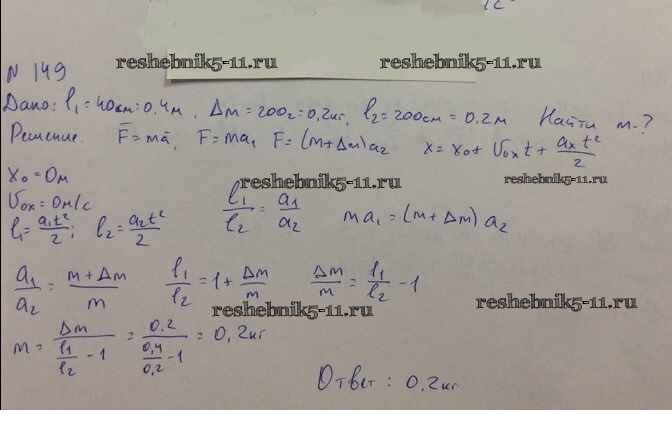 12
N 149
reshebnik5-11.ru reshebnik5-11.ru
Дано: l₁ = 40см = 0.4м, Δm = 200г = 0,2кг, l₂ = 200см = 0.2м Найти m-?
Решение. F̄ = mā, F = ma₁ F = (m+Δm)a₂ x = x₀ + V₀ₓt + aₓt²/2
reshebnik5-11.ru
x₀ = 0м
V₀ₓ = 0м/с
l₁ = a₁t²/2; l₂ = a₂t²/2 l₁/l₂ = a₁/a₂ ma₁ = (m+Δm) a₂
reshebnik5-11.ru
a₁/a₂ = m+Δm/m l₁/l₂ = 1 + Δm/m Δm/m = l₁/l₂ - 1
reshebnik5-11.ru reshebnik5-11.ru
m = Δm/(l₁/l₂ - 1) = 0.2/(0,4/0.2 - 1) = 0,2кг
Ответ: 0.2кг